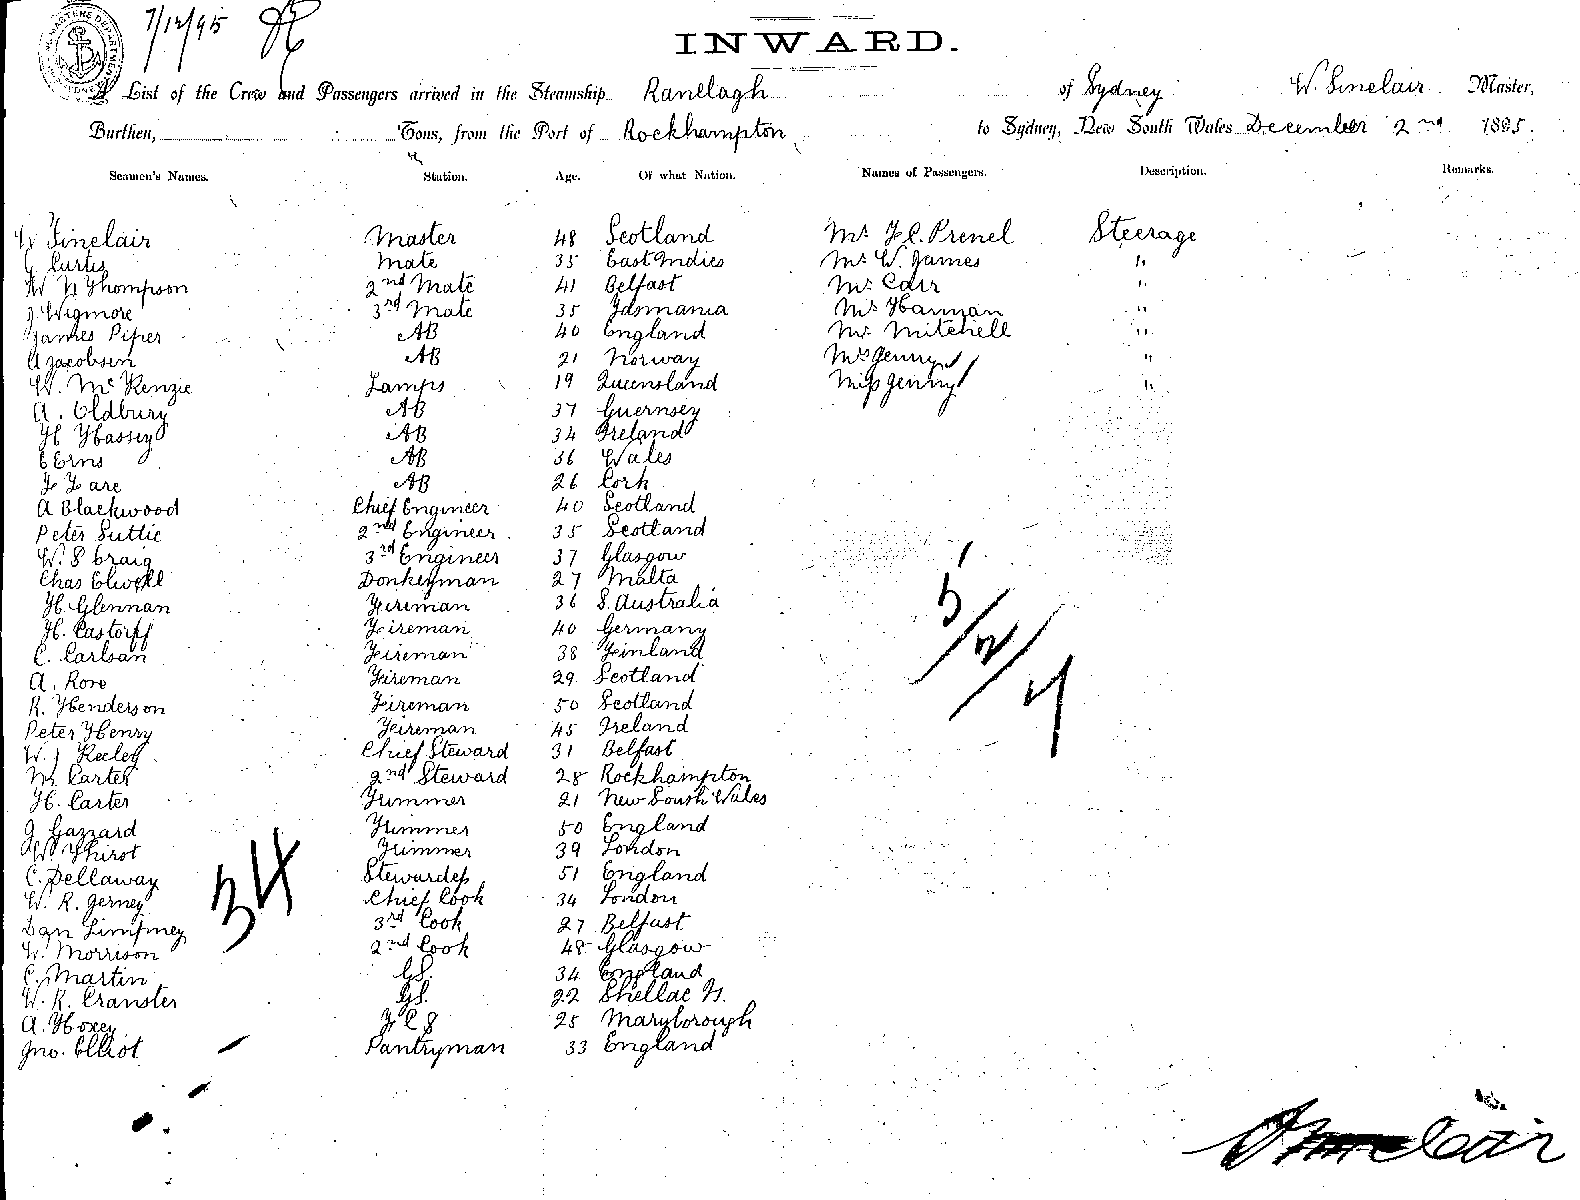 7/12/95
INWARD.
List of the Crew and Passengers arrived in the Steamship Ranelagh of Sydney W. Sinclair Master,
Burthen, Tons, from the Port of Rockhampton to Sydney, New South Wales December 2nd 1895.
Seamen's Names. Station. Age. Of what Nation. Names of Passengers. Description. Remarks.
W Sinclair Master 48 Scotland Mr F C. Prenel Steerage
G Curtis Mate 35 East Indies Mr W. James "
W N Thompson 2nd Mate 41 Belfast Mr Carr "
J Wigmore 3rd Mate 35 Tasmania Mr Hannan "
James Piper AB 40 England Mr Mitchell "
A Jacobsen AB 21 Norway Mrs Jenny "
W. McKenzie Lamps 19 Queensland Miss Jenny "
A. Oldbury AB 37 Guernsey
H Hassey AB 34 Ireland
E Erns AB 36 Wales
F Fare AB 26 Cork
A Blackwood Chief Engineer 40 Scotland
Peter Suttie 2nd Engineer 35 Scotland
W. S Craig 3rd Engineer 37 Glasgow
Chas Elwell Donkeyman 27 Malta
H. Glennan Fireman 36 S. Australia
H. Castorff Fireman 40 Germany
C. Carlson Fireman 38 Finland
A. Rore Fireman 29 Scotland
R. Henderson Fireman 50 Scotland
Peter Henry Fireman 45 Ireland
W. J Keeley Chief Steward 31 Belfast
M Carter 2nd Steward 28 Rockhampton
H. Carter Trimmer 21 New South Wales
G Gazzard Trimmer 50 England
W Thirot Trimmer 39 London
C. Dellaway Stewardess 51 England
W. R. Jerney Chief Cook 34 London
Dan Limpney 3rd Cook 27 Belfast
W. Morrison 2nd Cook 48 Glasgow
C. Martin GS. 34 England
W. R. Cranster GS. 22 Shellac Is.
A. Hoxey F C S 25 Maryborough
Jno. Elliot Pantryman 33 England
5/2/7
34
Sinclair